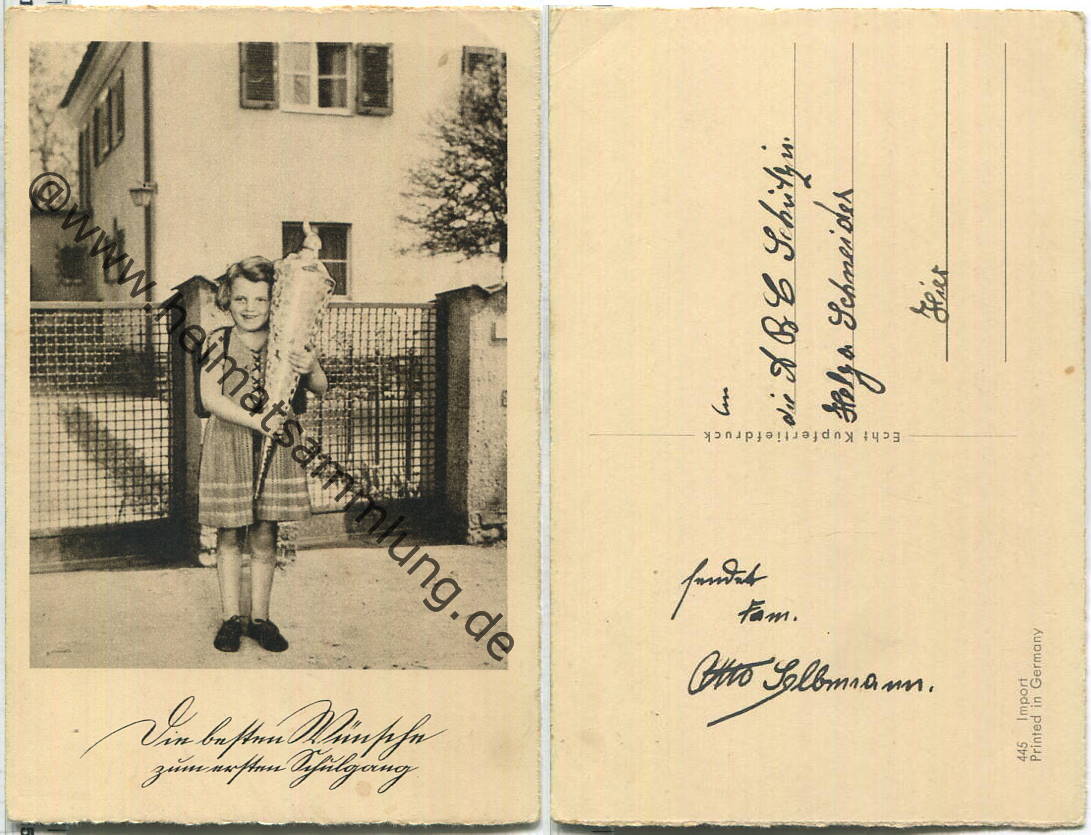 @www.heimatsammlung.de
Die besten Wünsche
zum ersten Schulgang
An
die A B C Schützin
Helga Schneider
Hier
Echt Kupfertiefdruck
sendet
Fam.
Otto Selbmann.
445 Import
Printed in Germany